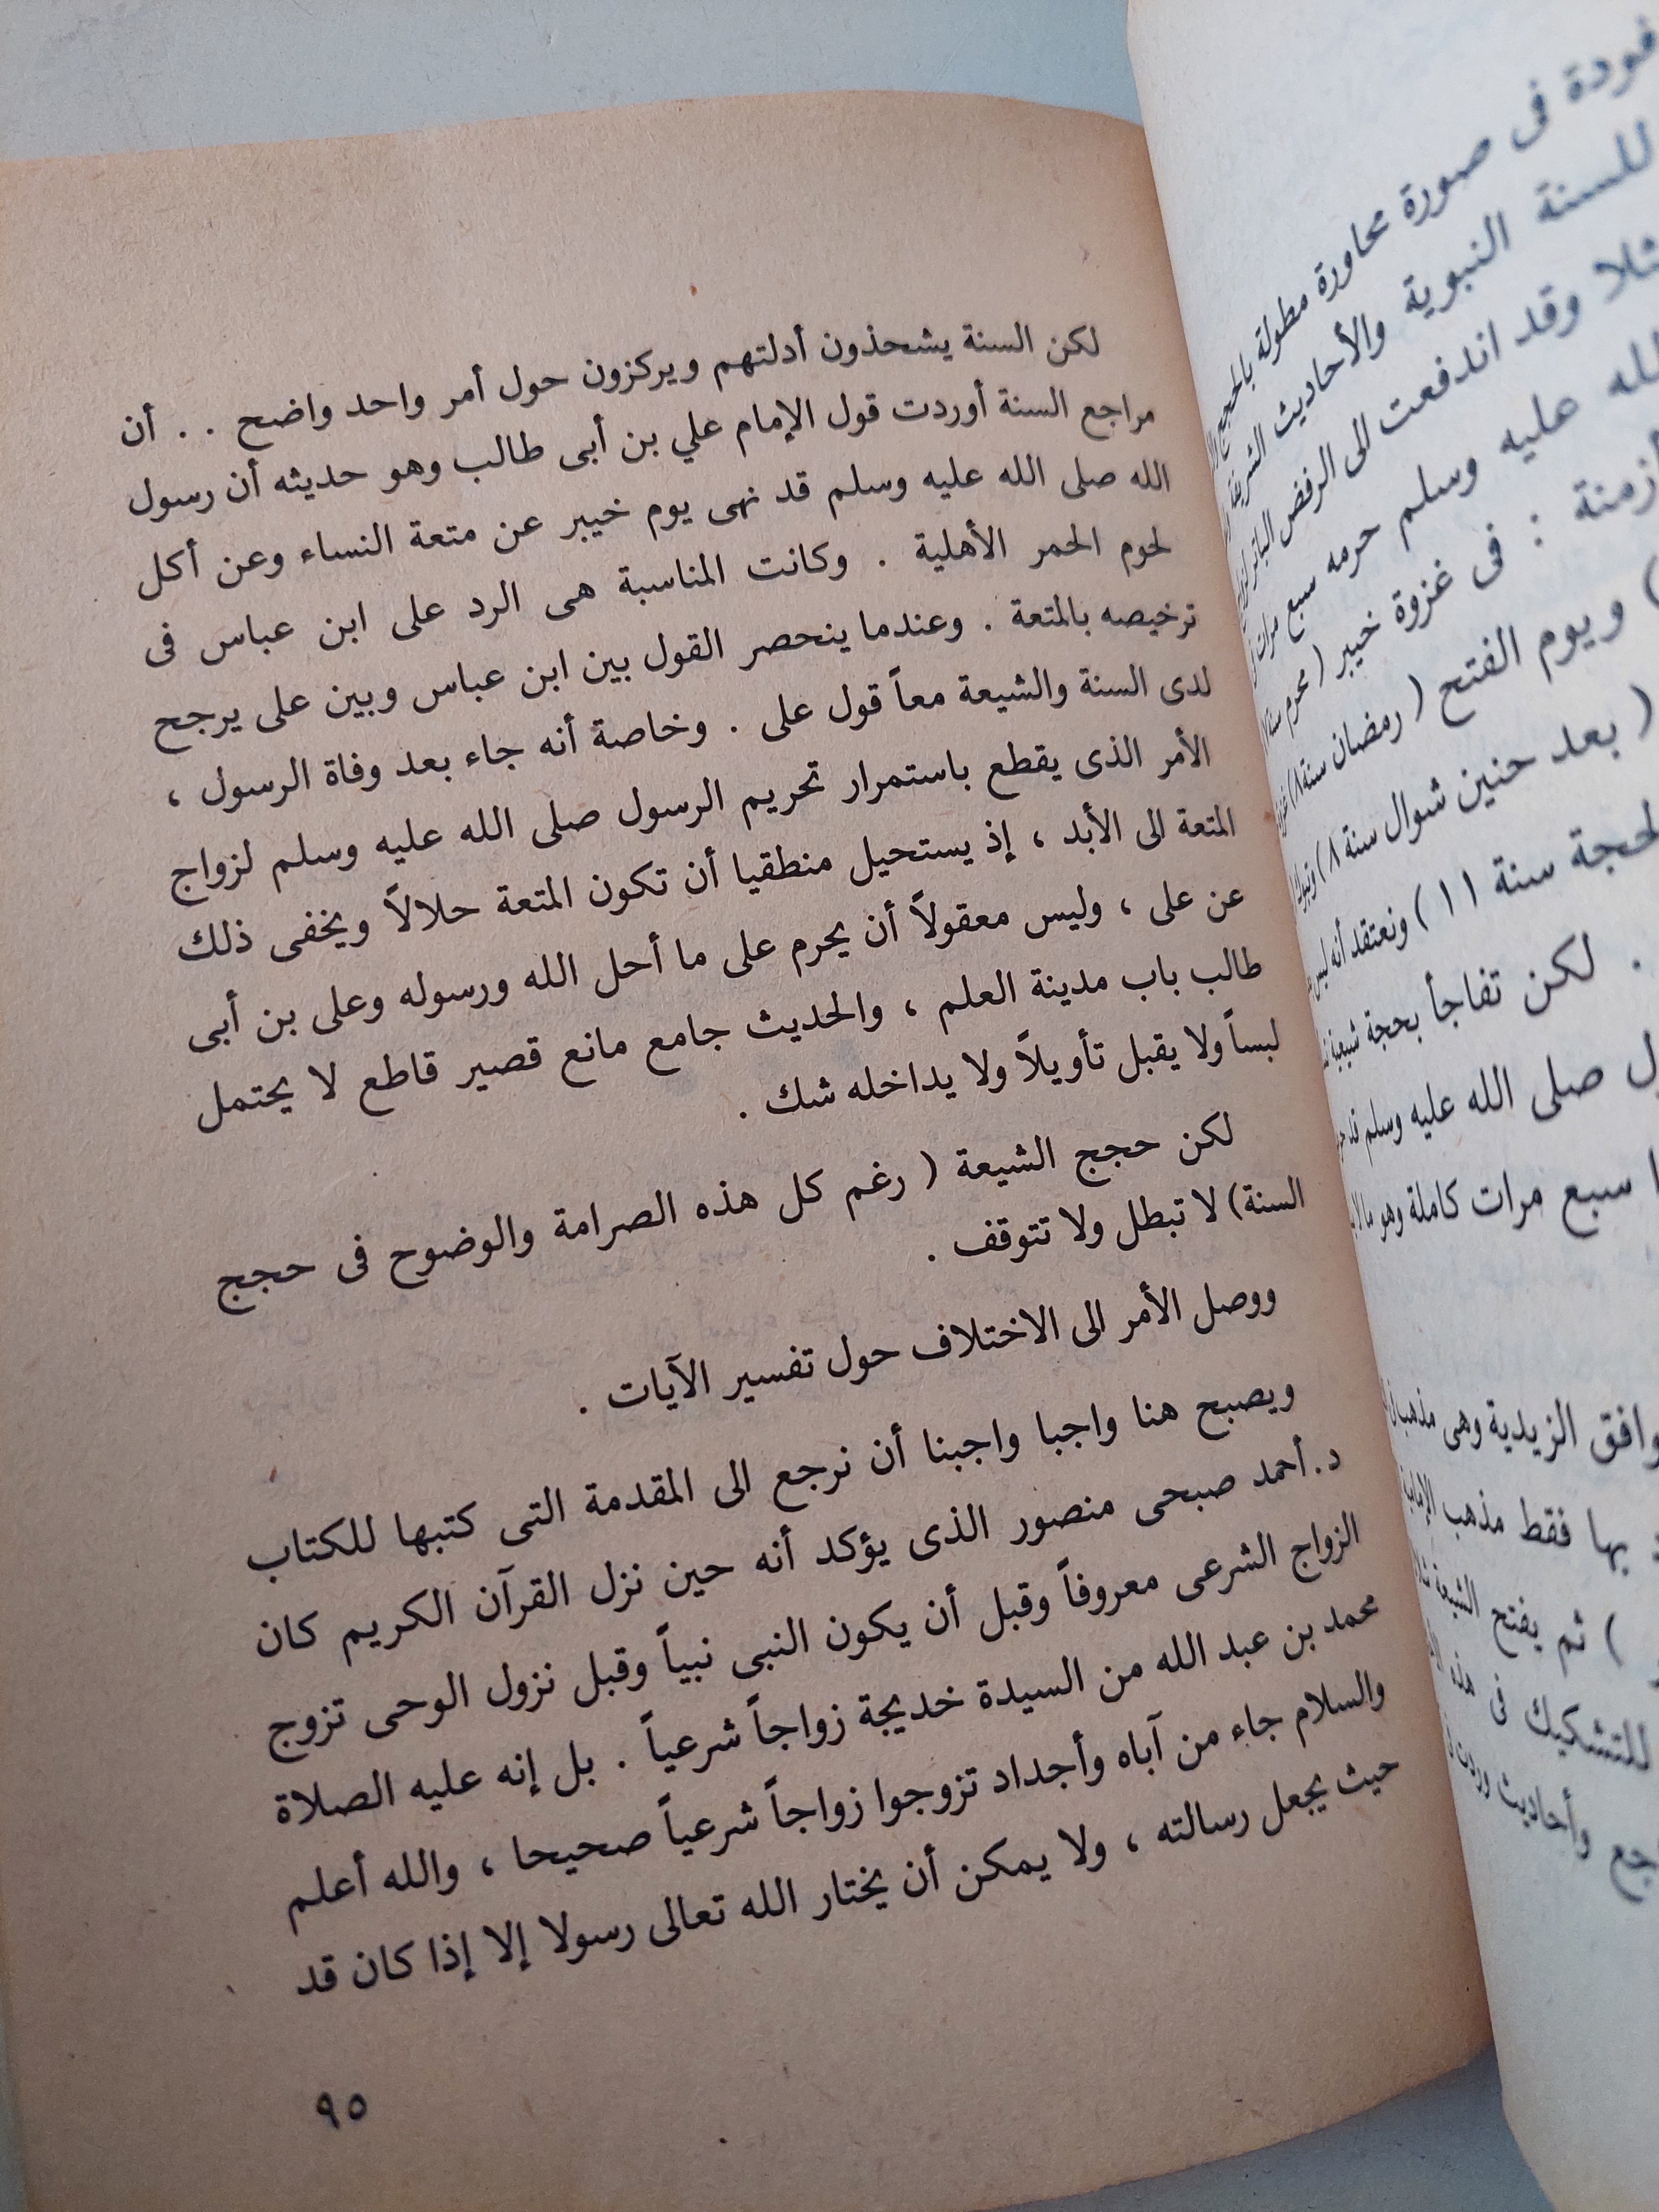 فودة فى صورة محاورة مطولة بالحجج
للسنة النبوية والأحاديث الشريفة
وقد اندفعت الى الرفض
الله عليه وسلم حرمه سبع مرات
أزمنة : فى غزوة خيبر ( محرم سنة
) ويوم الفتح ( رمضان سنة ٨ )
( بعد حنين شوال سنة ٨ )
الحجة سنة ١١ ) ونعتقد أنه ليس
. لكن تفاجأ بحجة شيعية
صلى الله عليه وسلم قد
سبع مرات كاملة وهو
وافق الزيدية وهى
بها فقط مذهب
) ثم يفتح الشيعة
للتشكيك فى هذه
وأحاديث وردت
لكن السنة يشحذون أدلتهم ويركزون حول أمر واحد واضح . . أن
مراجع السنة أوردت قول الإمام علي بن أبى طالب وهو حديثه أن رسول
الله صلى الله عليه وسلم قد نهى يوم خيبر عن متعة النساء وعن أكل
لحوم الحمر الأهلية . وكانت المناسبة هى الرد على ابن عباس فى
ترخيصه بالمتعة . وعندما ينحصر القول بين ابن عباس وبين على يرجح
لدى السنة والشيعة معاً قول على . وخاصة أنه جاء بعد وفاة الرسول ،
الأمر الذى يقطع باستمرار تحريم الرسول صلى الله عليه وسلم لزواج
المتعة الى الأبد ، إذ يستحيل منطقيا أن تكون المتعة حلالاً ويخفى ذلك
عن على ، وليس معقولاً أن يحرم على ما أحل الله ورسوله وعلى بن أبى
طالب باب مدينة العلم ، والحديث جامع مانع قصير قاطع لا يحتمل
لبساً ولا يقبل تأويلاً ولا يداخله شك .
لكن حجج الشيعة ( رغم كل هذه الصرامة والوضوح فى حجج
السنة) لا تبطل ولا تتوقف .
ووصل الأمر الى الاختلاف حول تفسير الآيات .
ويصبح هنا واجبا واجبنا أن نرجع الى المقدمة التى كتبها للكتاب
د. أحمد صبحى منصور الذى يؤكد أنه حين نزل القرآن الكريم كان
الزواج الشرعى معروفاً وقبل أن يكون النبى نبياً وقبل نزول الوحى تزوج
محمد بن عبد الله من السيدة خديجة زواجاً شرعياً . بل إنه عليه الصلاة
والسلام جاء من آباه وأجداد تزوجوا زواجاً شرعياً صحيحا ، والله أعلم
حيث يجعل رسالته ، ولا يمكن أن يختار الله تعالى رسولا إلا إذا كان قد
٩٥